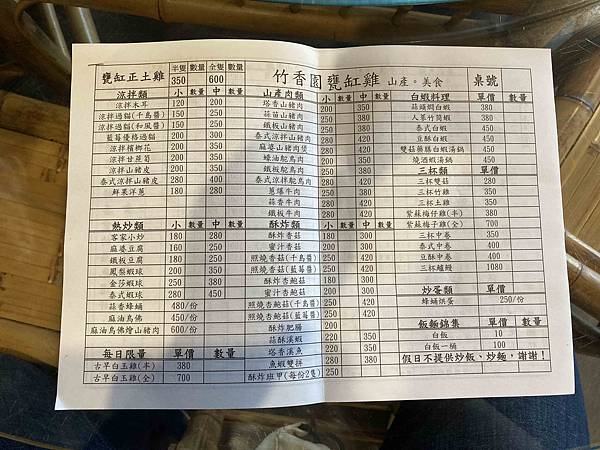 甕缸正土雞 半隻 數量 全隻 數量
350 600
竹香園甕缸雞 山產。美食 桌號
涼拌類 小 數量 中 數量
涼拌木耳 120 200
涼拌過貓(千島醬) 150 200
涼拌過貓(和風醬) 150 200
藍莓優格過貓 200 300
涼拌檳榔花 200 350
涼拌甘蔗筍 200 350
涼拌山豬皮 200 350
泰式涼拌山豬皮 280 400
鮮果洋蔥 180 280
熱炒類 小 數量 中 數量
客家小炒 180 280
麻婆豆腐 160 250
鐵板豆腐 180 250
鳳梨蝦球 200 350
金莎蝦球 250 380
泰式蝦球 280 450
蒜香蜂蛹 480/份
麻油烏佛 450/份
麻油烏佛燴山豬肉 600/份
每日限量 單價 數量
古早白玉雞(半) 380
古早白玉雞(全) 700
山產肉類 小 數量 中 數量
塔香山豬肉 200 350
蒜苗山豬肉
鐵板山豬肉
泰式涼拌山豬肉
麻婆山豬肉煲
蠔油鴕鳥肉
鐵板鴕鳥肉
泰式涼拌鴕鳥肉
蔥爆牛肉
蒜香牛肉
鐵板牛肉
酥炸類 小 數量 中 數量
酥炸香菇 180 300
蜜汁香菇
照燒香菇(千島醬)
照燒香菇(藍莓醬)
酥炸杏鮑菇
蜜汁杏鮑菇
照燒杏鮑菇(千島醬)
照燒杏鮑菇(藍莓醬)
酥炸肥腸
蒜酥溪蝦 220 350
塔香溪魚 220 350
魚蝦雙拼 280 380
酥炸班甲(每份2隻) 200
白蝦料理 單價 數量
蒜頭燜白蝦 380
人蔘竹筒蝦 380
泰式白蝦 450
豆酥白蝦 450
雙菇藥膳白蝦湯鍋 450
燒酒蝦湯鍋 450
三杯類 單價
三杯雙菇 280
三杯竹雞 350
三杯土雞 350
紫蘇梅仔雞(半) 380
紫蘇梅子雞(全) 700
三杯中卷 350
泰式中卷 400
豆酥中卷 400
三杯鱸鰻 1080
炒蛋類 單價
蜂蛹烘蛋 250/份
飯麵錦集 單價 數量
白飯 10
白飯一桶 100
假日不提供炒飯、炒麵，謝謝！